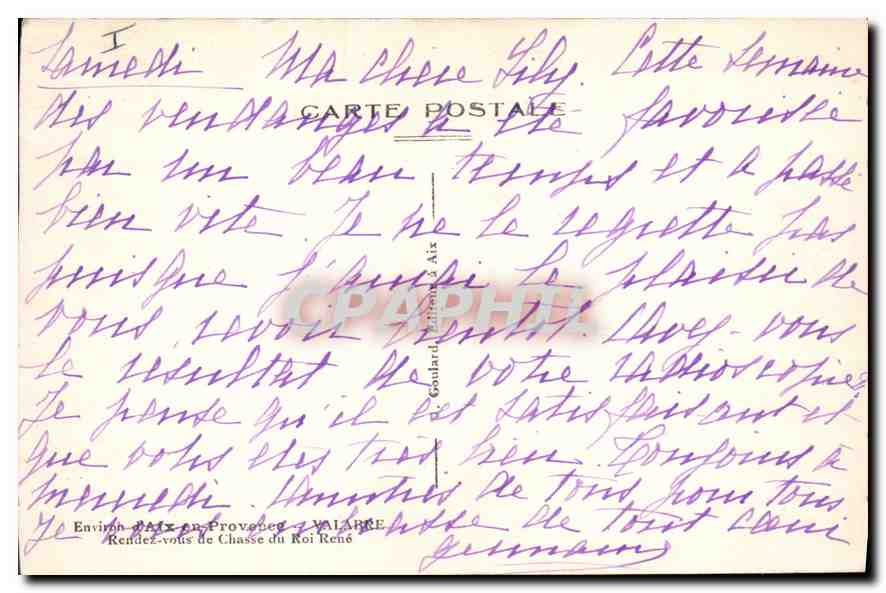 I
Samedi Ma chere Lily. Cette semaine
CARTE POSTALE
des vendanges a été favorisée
par un beau temps et a passé
bien vite. Je ne le regrette pas
puisque j'aurai le plaisir de
vous revoir bientot. Avez-vous
le resultat de votre radioscopie?
Je pense qu'il est satisfaisant et
que vous etes tres bien. Toujours à
mercredi. de tous pour tous
Je vous embrasse de tout cœur
germaine
Environ d'Aix-en-Provence - VALABRE
Rendez-vous de Chasse du Roi René
Goulard, Editeur à Aix
CPAPHIL